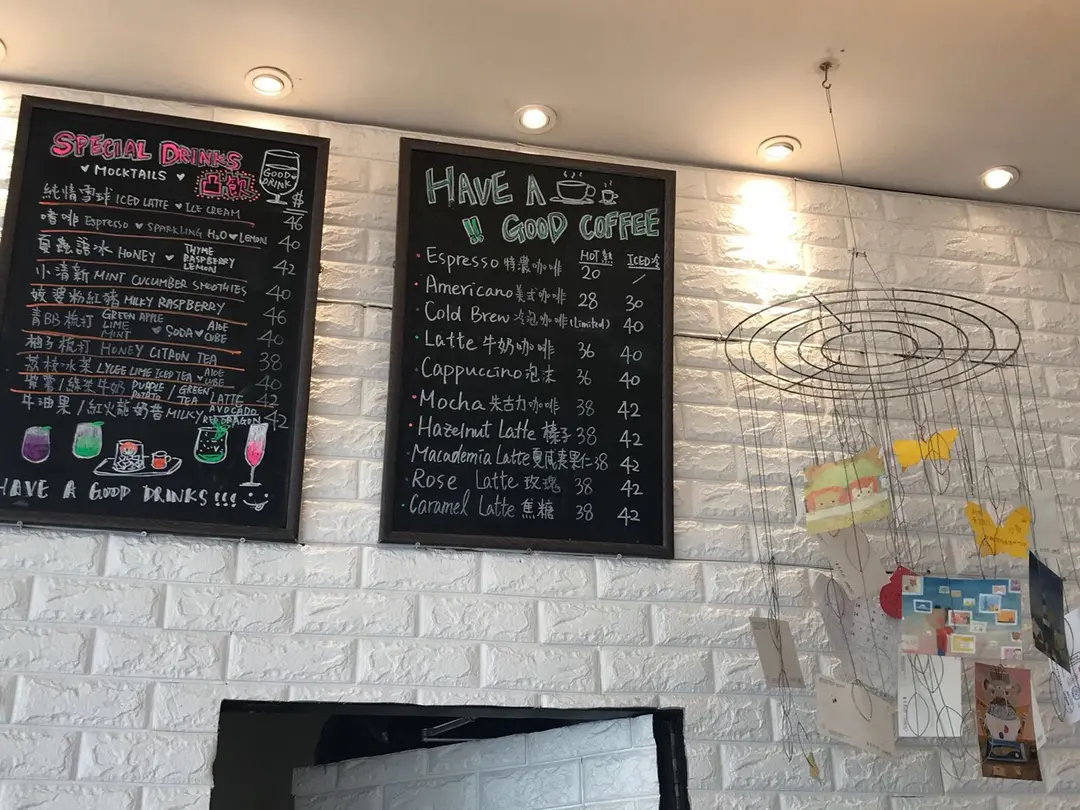 SPECIAL DRINKS
♥ MOCKTAILS ♥
GOOD DRINK
$
純情雪球 ICED LATTE ♥ ICE CREAM 46
嗜啡 Espresso ♥ SPARKLING H₂O ♥ LEMON 40
夏蟲語冰 HONEY ♥ THYME RASPBERRY LEMON 42
小清新 MINT CUCUMBER SMOOTHIES 40
粉紅豬 MILKY RASPBERRY 46
青BB梳打 GREEN APPLE LIME MINT ♥ SODA ♥ ALOE CUBE 40
柚子梳打 HONEY CITRON TEA 38
荔枝冰菓 LYCEE LIME ICED TEA ♥ ALOE CUBE 40
紫薯/綠茶牛奶 PURPLE POTATO / GREEN TEA LATTE 42
牛油果/紅火龍奶昔 MILKY AVOCADO RED DRAGON 42
HAVE A GOOD DRINKS!!!
HAVE A
!! GOOD COFFEE
HOT熱 ICED冷
Espresso 特濃咖啡 20 /
Americano 美式咖啡 28 30
Cold Brew 冷泡咖啡 (Limited) 40
Latte 牛奶咖啡 36 40
Cappuccino 泡沫 36 40
Mocha 朱古力咖啡 38 42
Hazelnut Latte 榛子 38 42
Macademia Latte 夏威夷果仁 38 42
Rose Latte 玫瑰 38 42
Caramel Latte 焦糖 38 42